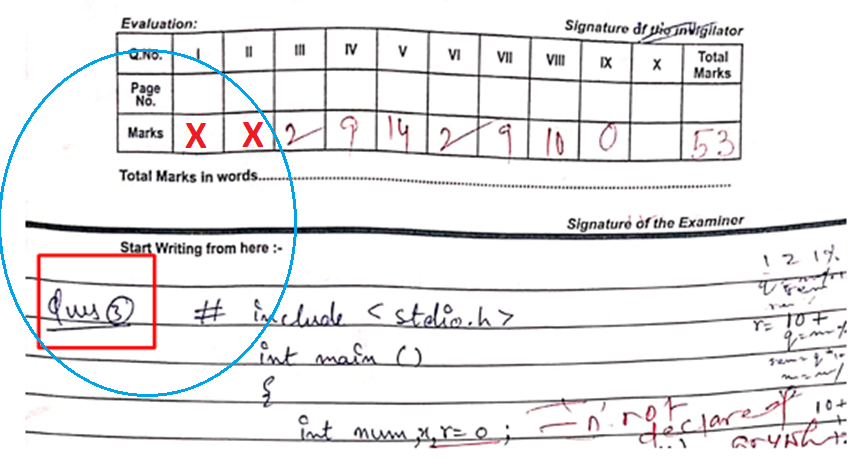 Evaluation:
Signature of the invigilator
Q.No. I II III IV V VI VII VIII IX X Total Marks
Page No.
Marks X X 2 9 14 2 9 10 0 53
Total Marks in words
Signature of the Examiner
Start Writing from here :-
1 2 1%
Ques 3 # include < stdio.h>
r= 10 +
int main ()
{
10+
int num, x, r= 0 ; n. not
declare